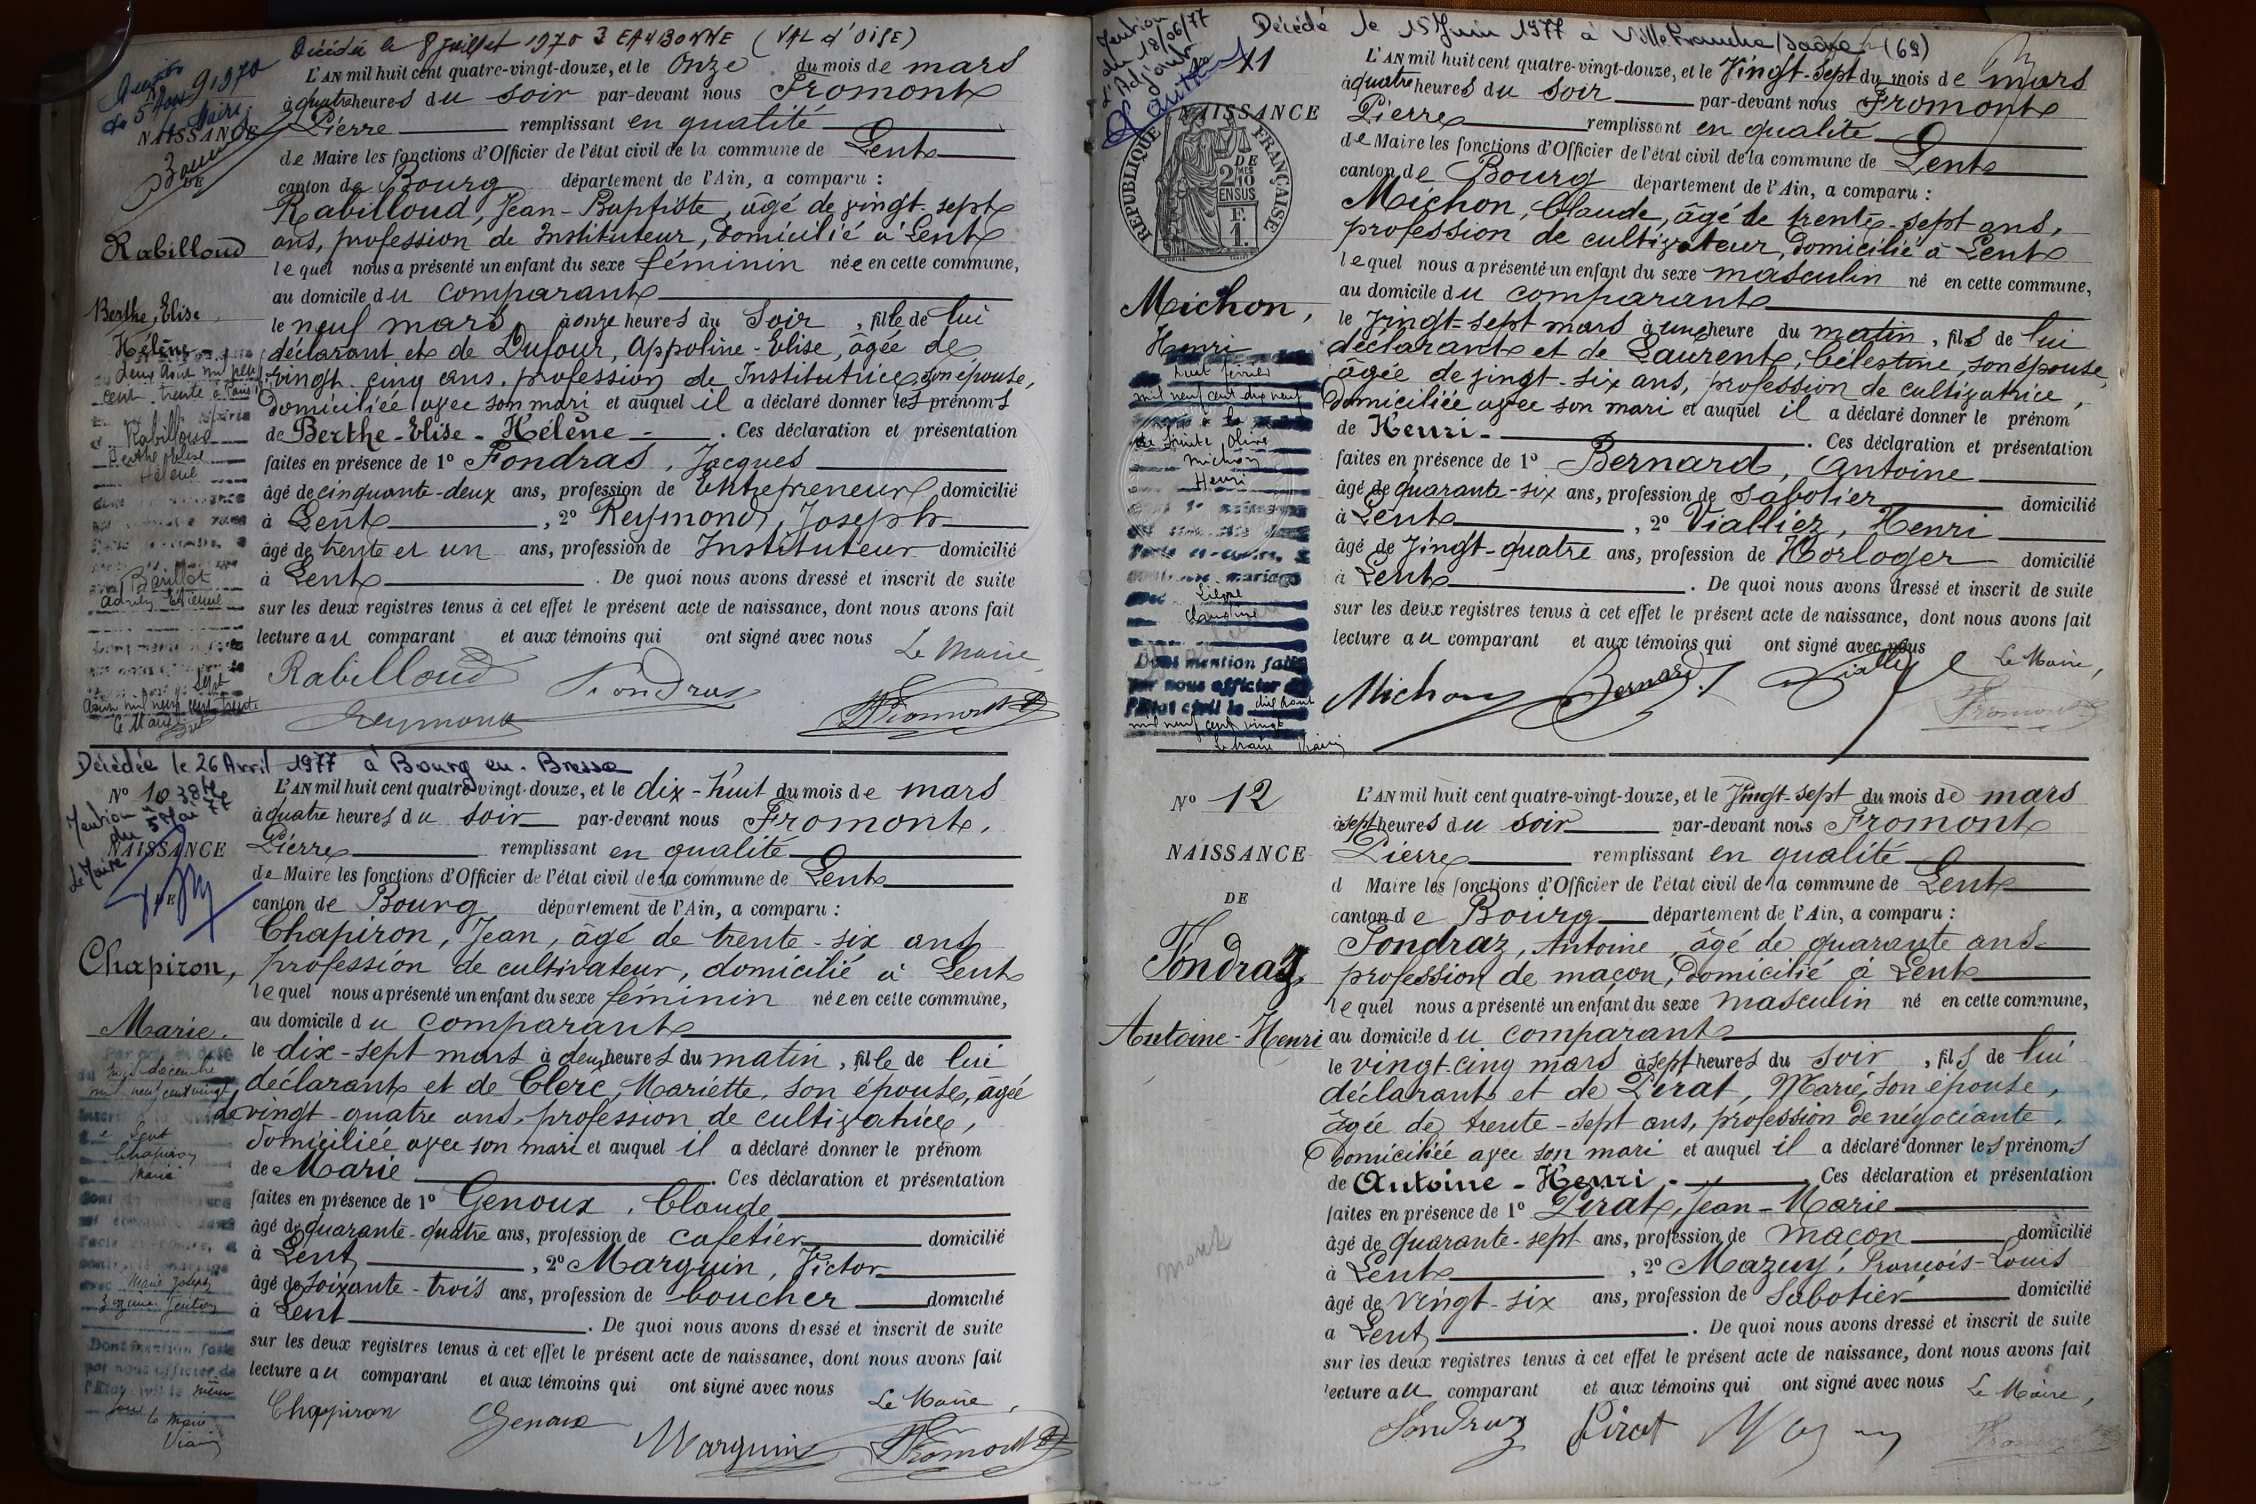 Décédée le 8 juillet 1970 à EAUBONNE (VAL d'OISE)
L'AN mil huit cent quatre-vingt-douze, et le onze du mois de mars
à quatre heures du soir par-devant nous Fromont
NAISSANCE
Pierre remplissant en qualité
de Maire les fonctions d'Officier de l'état civil de la commune de Lent
DE
canton de Bourg département de l'Ain, a comparu :
Rabilloud, Jean-Baptiste, âgé de vingt-sept
Rabilloud
ans, profession de Instituteur, domicilié à Lent
lequel nous a présenté un enfant du sexe féminin née en cette commune,
au domicile du comparant
Berthe, Elise,
le neuf mars, à onze heures du soir, fille de lui
Hélène
déclarant et de Dufour, Appoline-Elise, âgée de
vingt-cinq ans, profession de Institutrice, son épouse,
domiciliée avec son mari et auquel il a déclaré donner les prénoms
de Berthe-Elise-Hélène - . Ces déclaration et présentation
Rabilloud
Berthe Elise
Hélène
faites en présence de 1º Fondras, Jacques
âgé de cinquante-deux ans, profession de Entrepreneur domicilié
à Lent , 2º Reymond, Joseph
âgé de trente et un ans, profession de Instituteur domicilié
à Lent . De quoi nous avons dressé et inscrit de suite
sur les deux registres tenus à cet effet le présent acte de naissance, dont nous avons fait
lecture au comparant et aux témoins qui ont signé avec nous
Le Maire,
Rabilloud Fondras
Reymond Fromont
Décédée le 26 Avril 1977 à Bourg en-Bresse
Nº 10
L'AN mil huit cent quatre-vingt-douze, et le dix-huit du mois de mars
à quatre heures du soir par-devant nous Fromont,
Mention
du 5 Mai 77
Le Maire
NAISSANCE
Pierre remplissant en qualité
de Maire les fonctions d'Officier de l'état civil de la commune de Lent
DE
canton de Bourg département de l'Ain, a comparu :
Chapiron, Jean, âgé de trente-six ans
Chapiron,
profession de cultivateur, domicilié à Lent
lequel nous a présenté un enfant du sexe féminin née en cette commune,
Marie.
au domicile du comparant
le dix-sept mars à deux heures du matin, fille de lui
déclarant et de Clerc, Mariette, son épouse, âgée
de vingt-quatre ans, profession de cultivatrice,
domiciliée avec son mari et auquel il a déclaré donner le prénom
Lent
Chapiron
Marie
de Marie . Ces déclaration et présentation
faites en présence de 1º Genoux, Claude
âgé de quarante-quatre ans, profession de cafetier domicilié
à Lent , 2º Marguin, Victor
âgé de soixante-trois ans, profession de boucher domicilié
à Lent . De quoi nous avons dressé et inscrit de suite
sur les deux registres tenus à cet effet le présent acte de naissance, dont nous avons fait
lecture au comparant et aux témoins qui ont signé avec nous
Dont mention faite
par nous officier de
l'Etat civil le
le maire
Le Maire,
Chappiron Genoux
Marguin Fromont
Décédé le 15 Juin 1977 à Villefranche/Saône (69)
Mention
du 18/06/77
l'Adjoint
Nº 11
L'AN mil huit cent quatre-vingt-douze, et le vingt-sept du mois de mars
à quatre heures du soir par-devant nous Fromont
NAISSANCE
Pierre remplissant en qualité
de Maire les fonctions d'Officier de l'état civil de la commune de Lent
RÉPUBLIQUE FRANÇAISE
2 DMES 10
EN SUS
F.
1.
canton de Bourg département de l'Ain, a comparu :
Michon, Claude, âgé de trente-sept ans,
profession de cultivateur, domicilié à Lent
lequel nous a présenté un enfant du sexe masculin né en cette commune,
Michon,
au domicile du comparant
le vingt-sept mars à une heure du matin, fils de lui
Henri
déclarant et de Laurent, Célestine, son épouse,
âgée de vingt-six ans, profession de cultivatrice,
domiciliée avec son mari et auquel il a déclaré donner le prénom
huit février
mil neuf cent dix neuf
de Sainte Olive
Michon
Henri
de Henri - . Ces déclaration et présentation
faites en présence de 1º Bernard, Antoine
âgé de quarante-six ans, profession de sabotier domicilié
à Lent , 2º Vialliez, Henri
âgé de vingt-quatre ans, profession de Horloger domicilié
à Lent . De quoi nous avons dressé et inscrit de suite
sur les deux registres tenus à cet effet le présent acte de naissance, dont nous avons fait
lecture au comparant et aux témoins qui ont signé avec nous
Claudine
Dont mention faite
par nous officier de
l'Etat civil le
mil neuf cent vingt
Le Maire,
Michon Bernard
Fromont
Nº 12
L'AN mil huit cent quatre-vingt-douze, et le vingt-sept du mois de mars
à sept heures du soir par-devant nous Fromont
NAISSANCE
Pierre remplissant en qualité
d Maire les fonctions d'Officier de l'état civil de la commune de Lent
DE
canton de Bourg département de l'Ain, a comparu :
Fondraz, Antoine, âgé de quarante ans
Fondraz,
profession de maçon, domicilié à Lent
lequel nous a présenté un enfant du sexe masculin né en cette commune,
Antoine-Henri
au domicile du comparant
le vingt-cinq mars à sept heures du soir, fils de lui
déclarant et de Pirat, Marie, son épouse,
âgée de trente-sept ans, profession de négociante,
domiciliée avec son mari et auquel il a déclaré donner les prénoms
de Antoine-Henri - . Ces déclaration et présentation
faites en présence de 1º Pirat, Jean-Marie
âgé de quarante-sept ans, profession de maçon domicilié
à Lent , 2º Mazuy, François-Louis
âgé de vingt-six ans, profession de sabotier domicilié
à Lent . De quoi nous avons dressé et inscrit de suite
sur les deux registres tenus à cet effet le présent acte de naissance, dont nous avons fait
lecture au comparant et aux témoins qui ont signé avec nous
Le Maire,
Fondraz Pirat Mazuy
Fromont